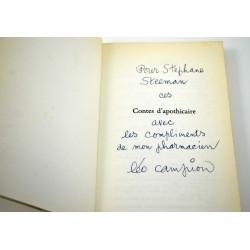 Pour Stéphane
Steeman
ces
Contes d'apothicaire
avec
les compliments
de mon pharmacien
léo campion